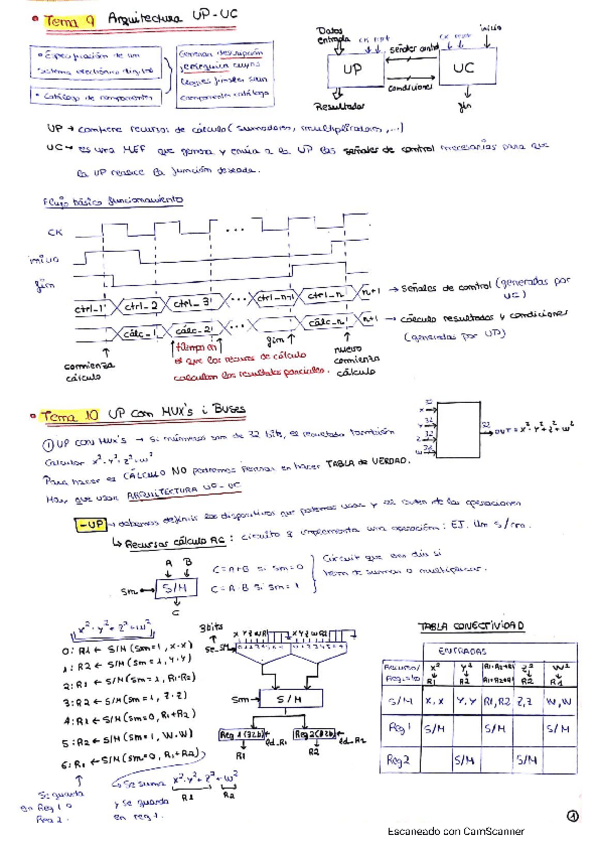 Tema 9 Arquitectura UP-UC
• Especificación de un
sistema electrónico digital
• Catálogo de componentes
Generar descripción
componentes catálogo
Datos
entrada
CK
señales control
condiciones
inicio
UP
UC
Resultados
fin
UP → contiene recursos de cálculo (sumadores, multiplicadores, ...)
UC → es una MEF que genera y envía a la UP las señales de control necesarias para que
la UP realice la función deseada.
Flujo básico funcionamiento
CK
inicio
fin
ctrl_1 ctrl_2 ctrl_3 ... ctrl_n-1 ctrl_n n+1 → señales de control (generadas por UC)
cálc_1 cálc_2 ... cálc_n n+1 → cálculo resultados y condiciones
(generadas por UP)
comienza
cálculo
tiempo en
el que los recursos de cálculo
calculan los resultados parciales.
fin
nuevo
comienzo
cálculo
Tema 10 UP con MUX's i Buses
① UP con MUX's → Si números son de 32 bits, el resultado también
Calcular x²·y²+z²+w²
Para hacer el CÁLCULO NO podremos pensar en hacer TABLA de VERDAD.
Hay que usar ARQUITECTURA UP-UC
32
X
Y
Z
W
32
OUT = x²·y²+z²+w²
-UP → debemos definir los dispositivos que podemos usar y el orden de las operaciones
↳ Recursos cálculo RC: circuito q implementa una operación: EJ. Un S/M.
A B
Sm → S/M
C
C=A+B si Sm=0
C=A·B si Sm=1
Circuit que ens diu si
hem de sumar o multiplicar.
x²·y²+z²+w²
0: R1 ← S/M (Sm=1, X·X)
1: R2 ← S/M (Sm=1, Y·Y)
2: R1 ← S/M (Sm=1, R1·R2)
3: R2 ← S/M (Sm=1, Z·Z)
4: R1 ← S/M (Sm=0, R1+R2)
5: R2 ← S/M (Sm=1, W·W)
6: R1 ← S/M (Sm=0, R1+R2)
Se guarda
en Reg 1 o
Reg 2.
Se suma x²·y²+z²+w²
R1 R2
y se guarda
en reg 1.
3bits
Se_SM
Sm → S/M
Reg 1 (32b) ld_R1
Reg 2 (32b) ld_R2
R1
R2
TABLA CONECTIVIDAD
ENTRADAS
X² Y² Z² W²
R1 R2 R1 R2 R1
S/M X,X Y,Y R1,R2 Z,Z W,W
Reg 1 S/M S/M S/M
Reg 2 S/M S/M
①
Escaneado con CamScanner